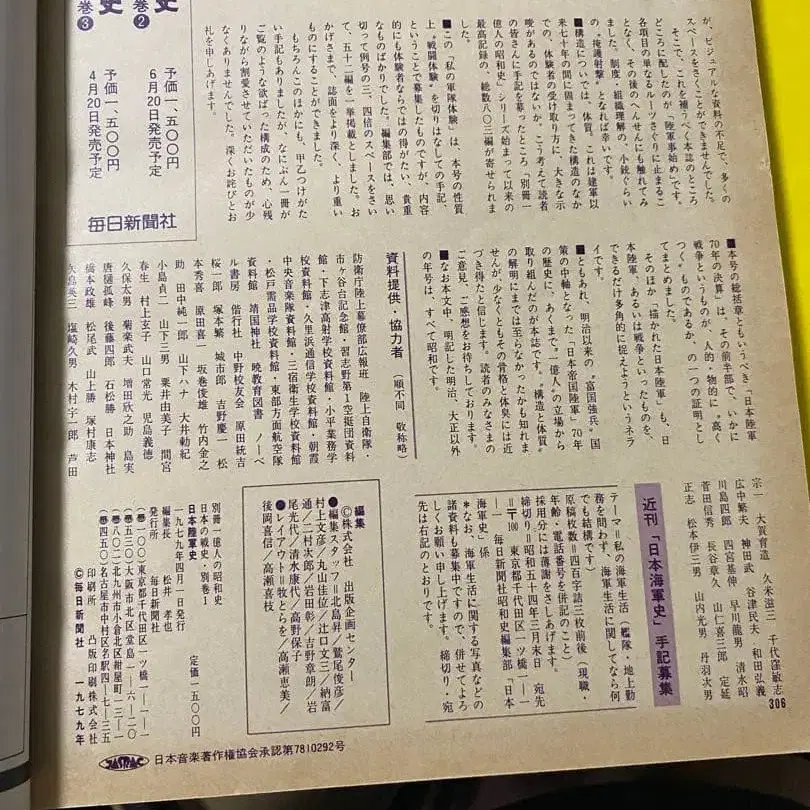 が、ビジュアルな資料の不足で、多くの
スペースをさくことができませんでした。
そこで、これを補うべく本誌のところ
どころに配したのが「陸軍事始め」です。
各項目の単なるルーツさぐりに止まるこ
となく、その後のへんせんにも触れてみ
ました。制度・組織理解の、小銃ぐらい
の〝掩護射撃〟となれば幸いです。
■構造については、体質。これは建軍以
来七十年の間に固まってきた構造のなか
での、体験者の受け取り方に、大きな示
唆があるのではないか。こう考えて読者
の皆さんに手記を募ったところ「別冊一
億人の昭和史」シリーズ始まって以来の
最高記録の、総数八〇三編が寄せられま
した。
■この「私の軍隊体験」は、本号の性質
上〝戦闘体験〟を切りはなしての手記、
ということで募集したものですが、内容
的にも体験者ならではの得がたい、貴重
なものばかりでした。編集部では、思い
切って例号の三、四倍のスペースをさい
て、五十二編を一挙掲載としました。お
かげさまで、誌面をより深く、より重い
ものにすることができました。
もちろんこのほかにも、甲乙つけがた
い手記もありましたが、なにぶん一冊が
ご覧のような欲ばった構成のため、心残
りながら割愛させていただいたものが少
なくありませんでした。深くお詫びとお
礼を申しあげます。
史
巻❷
予価一、五〇〇円
6月20日発売予定
史
巻❸
予価一、五〇〇円
4月20日発売予定
毎日新聞社
■本号の総括章ともいうべき「日本陸軍
70年の決算」は、その前半部で、いかに
戦争というものが、人的・物的に〝高く
つく〟ものであるか、の一つの証明とし
てまとめました。
そのほか「描かれた日本陸軍」も、日
本陸軍、あるいは戦争といったものを、
できるだけ多角的に捉えようというネラ
イです。
■ともあれ、明治以来の〝富国強兵〟国
策の中軸となった「日本帝国陸軍」70年
の歴史に、あくまで〝一億人〟の立場から
取り組んだのが本誌です。〝構造と体質〟
の解明にまでは至らなかったかも知れま
せんが、少なくともその骨格と体臭には近
づき得たと信じます。読者のみなさまの
ご意見、ご感想をお待ちしております。
■なお本文中、明記した明治、大正以外
の年号は、すべて昭和です。
資料提供・協力者 (順不同 敬称略)
防衛庁陸上幕僚部広報班 陸上自衛隊・
市ヶ谷台記念館・習志野第1空挺団資料
館・下志津高射学校資料館・小平業務学
校資料館・久里浜通信学校資料館・朝霞
中央音楽隊資料館・三宿衛生学校資料館
・松戸需品学校資料館・東部方面航空隊
資料館 靖国神社 暁教育図書 ノーベ
ル書房 偕行社 中野校友会 原田統吉
桜一郎 塚本繁 城市郎 吉野慶一 松
本秀喜 原田喜一 坂巻俊雄 竹内金之
助 田中純一郎 山下ハナ 大井勅紀
小島貞二 山下三男 粟井由美子 間宮
春生 村上玄子 山口常光 児島義徳
久保太男 菊楽武夫 増田欣之助 島実
唐樋孤峰 後藤四郎 石松勝 日本神社
橋本政雄 松尾武 山上勝 塚村康志
矢島英三 塩崎久男 木村宇一郎 芦田
宗一 大賀育造 久米滋三 千代窪敏志
広中繁夫 神田武 谷津民夫 和田弘義
川島四郎 四宮基伸 早川龍男 清水昭
菅田信秀 長谷章久 山仁喜三郎 定延
正志 松本伊三男 山内光男 丹羽次男
近刊「日本海軍史」手記募集
テーマ＝私の海軍生活(艦隊・地上勤
務を問わず、海軍生活に関してなら何
でも結構です)
原稿枚数＝四百字詰三枚前後(現職・
年齢・電話番号を併記のこと)
採用分には薄謝をさしあげます。
締切り＝昭和五十四年三月末日 宛先
＝〒100 東京都千代田区一ツ橋一－一
－一 毎日新聞社昭和史編集部「日本
海軍史」係
＊なお、海軍生活に関する写真などの
諸資料も募集中ですので、併せてよろ
しくお願い申し上げます。締切り・宛
先は右記のとおりです。
編集
©株式会社 出版企画センター
●編集スタッフ＝北島昇／鷲尾俊彦／
村上文彦／丸山佳位／辻口文三／納富
通／二村次郎／岩田彰／吉野章朗／岩
尾光代／清水康代／高野保子
●レイアウト＝牧とらを／高瀬恵美／
後岡喜信／高瀬喜枝
別冊一億人の昭和史
日本の戦史・別巻1
日本陸軍史 定価一五〇〇円
一九七九年四月一日発行
編集長 松井孝也
発行所 毎日新聞社
(〒一〇〇)東京都千代田区一ツ橋一－一－一
(〒五三〇)大阪市北区堂島一－六－二〇
(〒八〇二)北九州市小倉北区紺屋町一三－一
(〒四五〇)名古屋市中村区名駅四－七－三五
印刷所 凸版印刷株式会社
©毎日新聞社 一九七九年
306
JASRAC 日本音楽著作権協会承認第7810292号